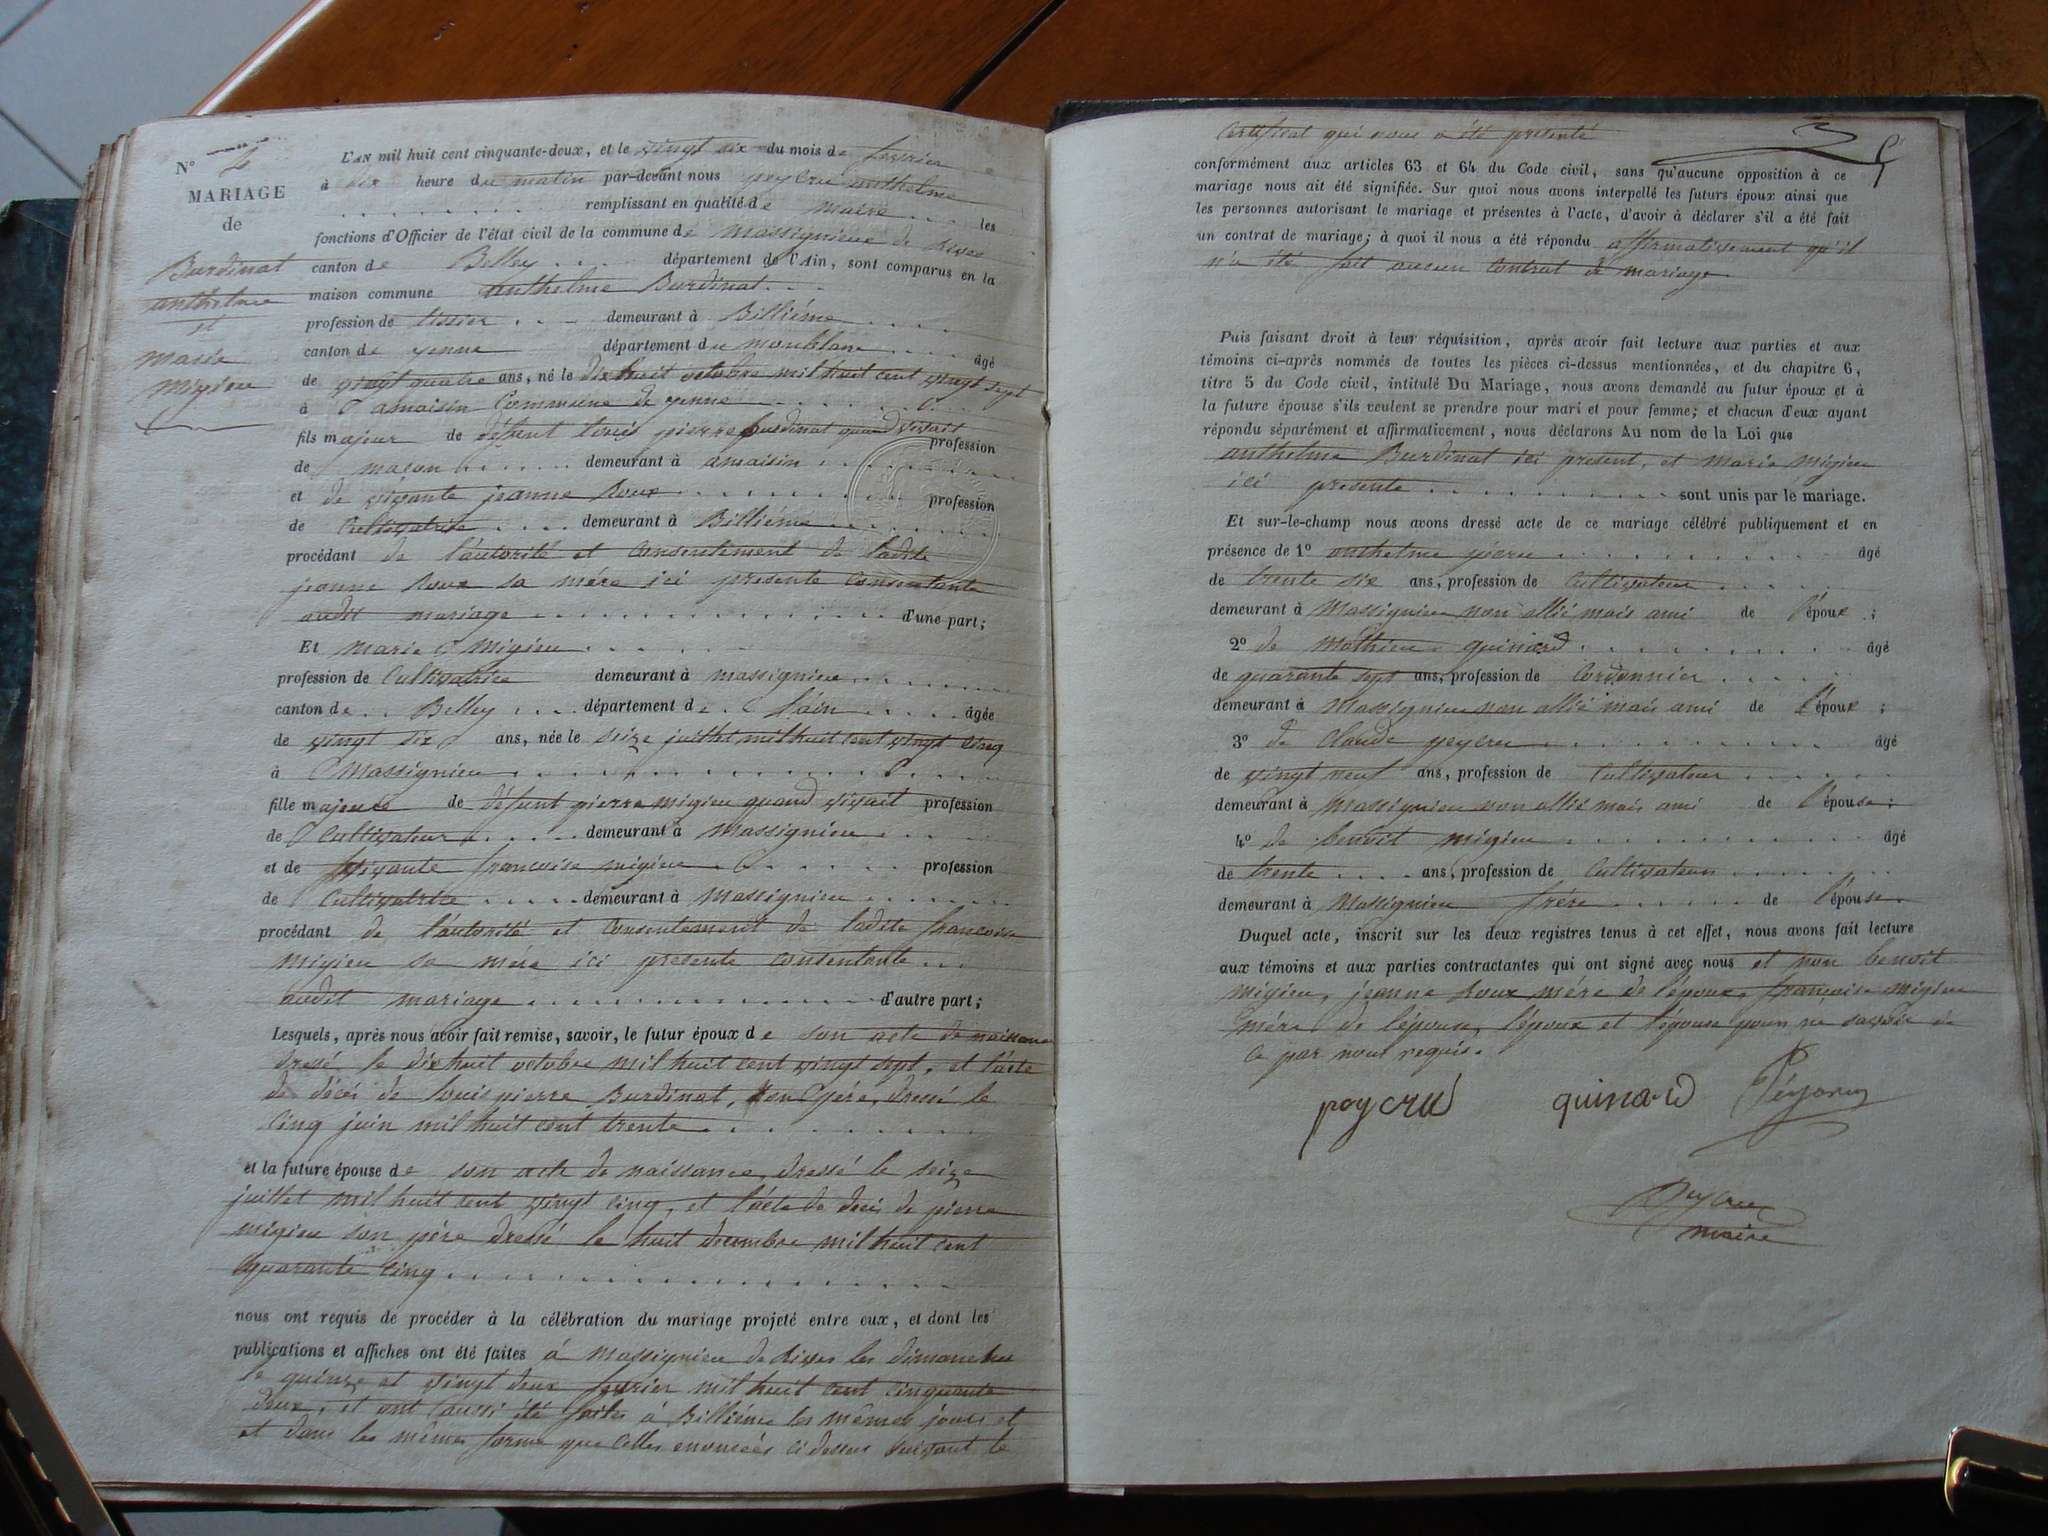 N° 2
MARIAGE
de
Burdinat
anthelme
et
marie
migieu
L'AN mil huit cent cinquante-deux, et le vingt six du mois de fevrier
à dix heure du matin par-devant nous peycru anthelme
remplissant en qualité de maire les
fonctions d'Officier de l'état civil de la commune de massignieu de rives
canton de Belley département de l'Ain, sont comparus en la
maison commune anthelme Burdinat
profession de tissier demeurant à Billiéme
canton de yenne département du monblanc âgé
de vingt quatre ans, né le dix huit octobre mil huit cent vingt sept
à amaisin Commune de yenne
fils majeur de défunt louis pierre burdinat quand vivait profession
de macon demeurant à amaisin
et de vivante jeanne Roux profession
de Cultivatrice demeurant à Billiéme
procédant de l'autorité et consentement de ladite
jeanne Roux sa mére ici presente consentante
audit mariage d'une part;
Et marie migieu
profession de Cultivatrice demeurant à massignieu
canton de Belley département de l'ain âgée
de vingt six ans, née le seize juillet mil huit cent vingt cinq
à Massignieu
fille majeure de défunt pierre migieu quand vivait profession
de Cultivateur demeurant à massignieu
et de vivante francoise migieu profession
de Cultivatrice demeurant à massignieu
procédant de l'autorité et consentement de ladite francoise
migieu sa mére ici presente consentante
audit mariage d'autre part;
Lesquels, après nous avoir fait remise, savoir, le futur époux de son acte de naissance
dressé le dix huit octobre mil huit cent vingt sept, et l'acte
de décés de louis pierre Burdinat, son pére, dressé le
cinq juin mil huit cent trente
et la future épouse de son acte de naissance, dressé le seize
juillet mil huit cent vingt cinq, et l'acte de décés de pierre
migieu son pére dressé le huit decembre mil huit cent
quarante cinq
nous ont requis de procéder à la célébration du mariage projeté entre eux, et dont les
publications et affiches ont été faites á Massignieu de Rives les dimanches
le quinze et vingt deux fevrier mil huit cent cinquante
deux, et ont aussi été faites á Billiéme les mêmes jours et
et dans les mêmes forme que celles enoncées ci dessus suivant le
Certificat qui nous a été presenté
conformément aux articles 63 et 64 du Code civil, sans qu'aucune opposition à ce
mariage nous ait été signifiée. Sur quoi nous avons interpellé les futurs époux ainsi que
les personnes autorisant le mariage et présentes à l'acte, d'avoir à déclarer s'il a été fait
un contrat de mariage; à quoi il nous a été répondu affirmativement qu'il
n'a été fait aucun contrat de mariage
Puis faisant droit à leur réquisition, après avoir fait lecture aux parties et aux
témoins ci-après nommés de toutes les pièces ci-dessus mentionnées, et du chapitre 6,
titre 5 du Code civil, intitulé Du Mariage, nous avons demandé au futur époux et à
la future épouse s'ils veulent se prendre pour mari et pour femme; et chacun d'eux ayant
répondu séparément et affirmativement, nous déclarons Au nom de la Loi que
anthelme Burdinat ici present, et marie migieu
ici presente sont unis par le mariage.
Et sur-le-champ nous avons dressé acte de ce mariage célébré publiquement et en
présence de 1° anthelme âgé
de trente six ans, profession de Cultivateur
demeurant à Massignieu non allié mais ami de l'époux ;
2° de mathieu quinard âgé
de quarante sept ans, profession de Cordonnier
demeurant à Massignieu non allié mais ami de l'époux ;
3° de Claude peycru âgé
de vingt neuf ans, profession de Cultivateur
demeurant à Massignieu non allié mais ami de l'épouse ;
4° de benoît migieu âgé
de trente ans, profession de Cultivateur
demeurant à Massignieu frére de l'épouse.
Duquel acte, inscrit sur les deux registres tenus à cet effet, nous avons fait lecture
aux témoins et aux parties contractantes qui ont signé avec nous et non benoît
migieu, jeanne Roux mére de l'époux, francoise migieu
mére de l'épouse, l'époux et l'épouse pour ne savoir de
ce par nous requis.
peycru quinard
Peycru
maire